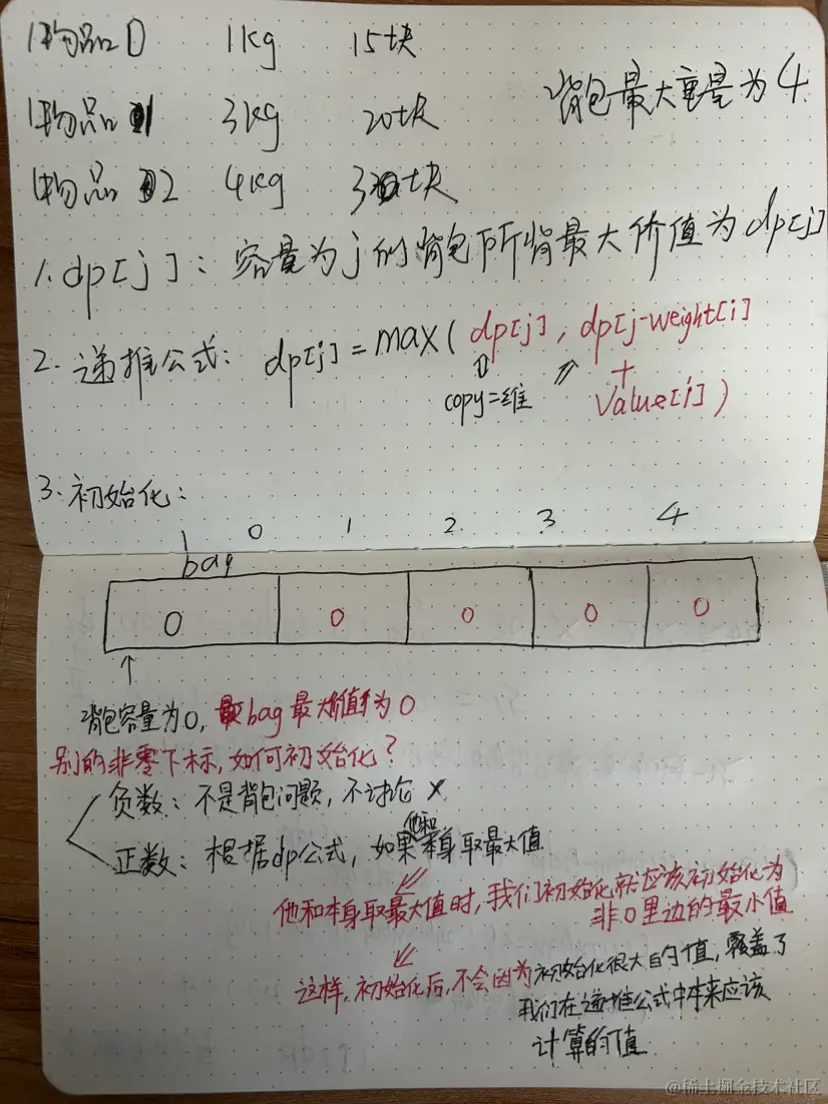 物品0 1kg 15块
物品1 3kg 20块
背包最大重量为4
物品2 4kg 30块
1. dp[j]：容量为j的背包所背最大价值为dp[j]
2. 递推公式：dp[j]=max(dp[j], dp[j-weight[i]
+
copy=维
value[i])
3. 初始化：
0 1 2 3 4
bag
0 0 0 0 0
背包容量为0，bag最大价值为0
别的非零下标，如何初始化？
负数：不是背包问题，不讨论 ×
正数：根据dp公式，如果他和本身取最大值
他和本身取最大值时，我们初始化就应该初始化为
非0里边的最小值
这样，初始化后，不会因为初始化很大的值，覆盖了
我们在递推公式中本来应该
计算的值
@稀土掘金技术社区